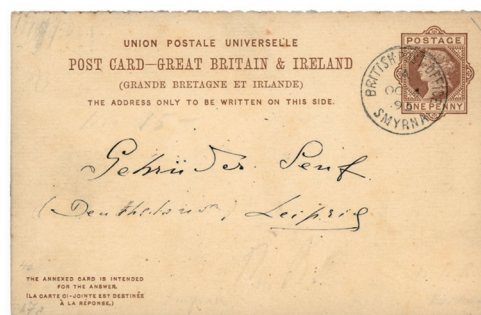 UNION POSTALE UNIVERSELLE
POST CARD—GREAT BRITAIN & IRELAND
(GRANDE BRETAGNE ET IRLANDE)
THE ADDRESS ONLY TO BE WRITTEN ON THIS SIDE.
POSTAGE
ONE PENNY
BRITISH POST OFFICE
OC
95
SMYRNA
Gebrüder Senf
Leipzig
THE ANNEXED CARD IS INTENDED
FOR THE ANSWER.
(LA CARTE CI-JOINTE EST DESTINÉE
À LA RÉPONSE.)